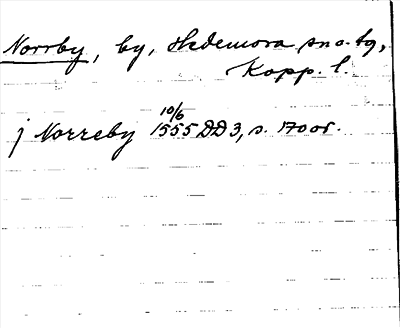 Norrby, by, Hedemora sn o. tg,
Kopp. l.
10/6
j Norreby 1555 DD 3, s. 170 or.